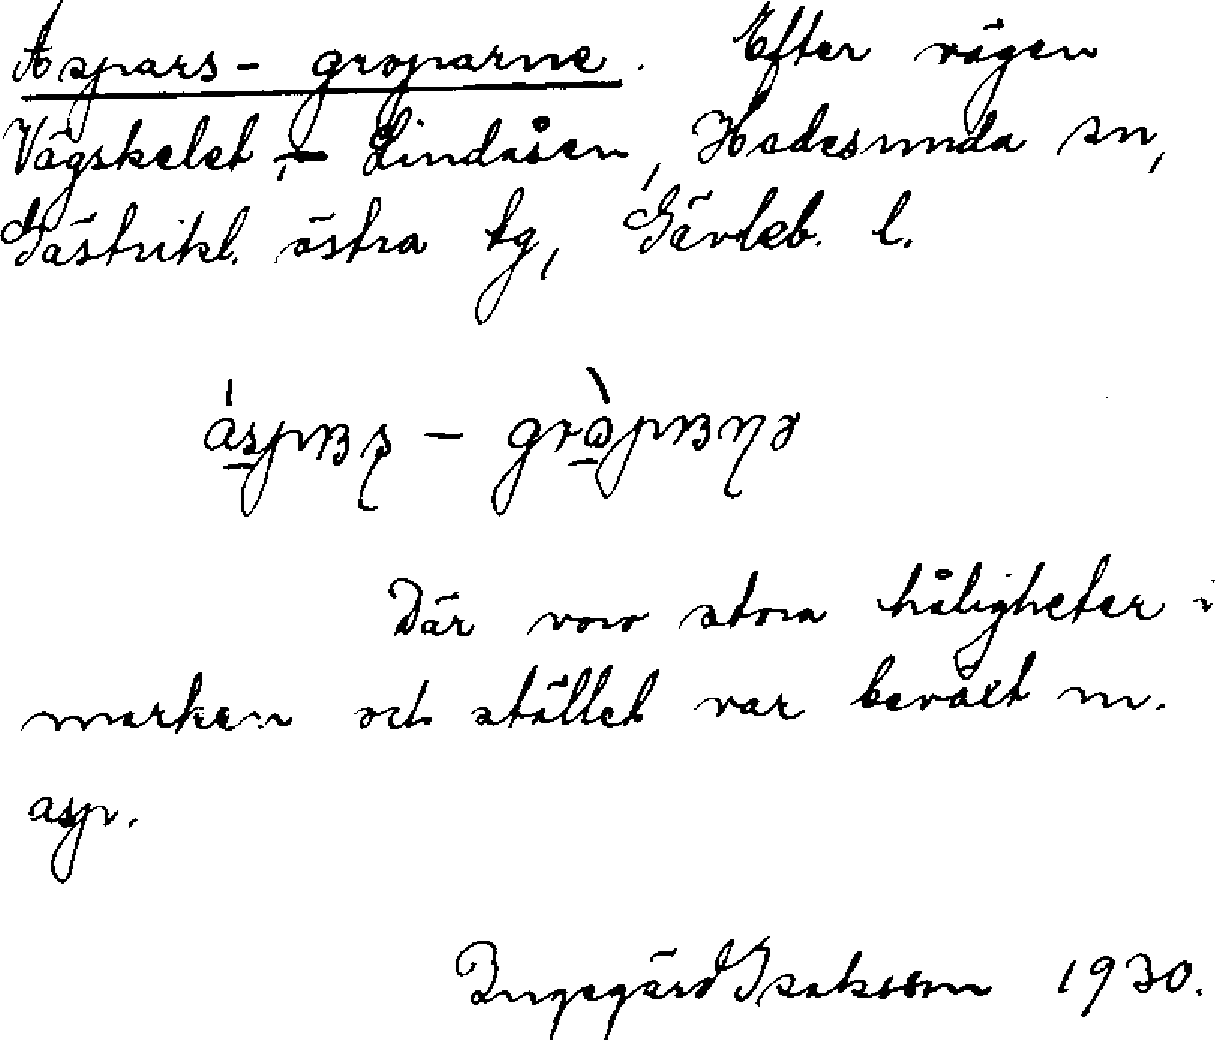 Aspars-groparne. Efter vägen
Vägskelet - Lindåsen, Hedesunda sn,
Gästrikl. östra tg, Gävleb. l.
Där voro stora håligheter i
marken och stället var beväxt m.
asp.
Ingegärd Isaksson 1930.